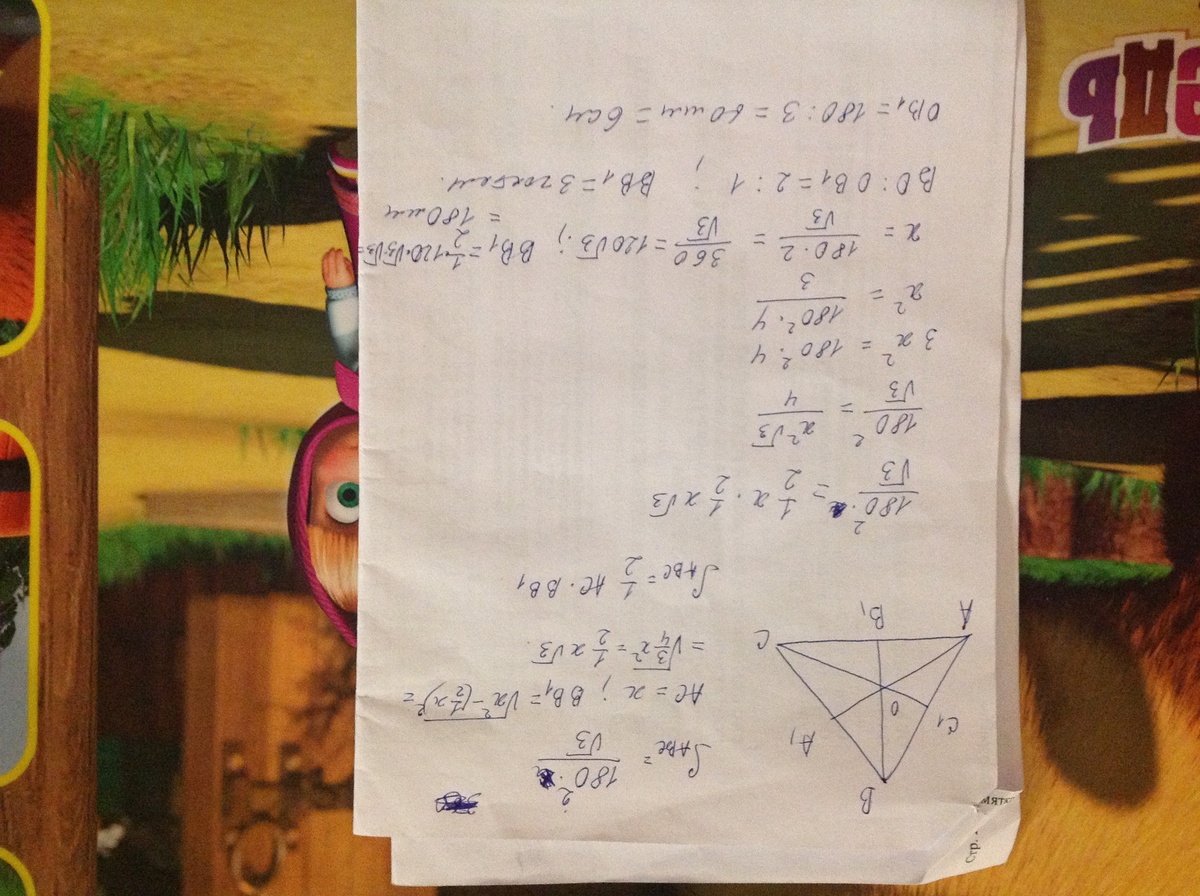 S_ABC = 180²/√3
AC = x ; BB₁ = √(x² − (½x)²) =
= √(3/4 x²) = ½ x√3.
S_ABC = ½ AC · BB₁
B
A₁
C₁
O
C
B₁
A
180²/√3 = ½ x · ½ x√3
180²/√3 = x²√3/4
3x² = 180² · 4
x² = 180² · 4/3
x = 180 · 2/√3 = 360/√3 = 120√3 ; BB₁ = ½ · 120 · √3 · √3 =
= 180 мм
BO : OB₁ = 2 : 1 ; BB₁ = 3 частям.
OB₁ = 180 : 3 = 60 мм = 6 см.
ЕДЬ
Стр. -